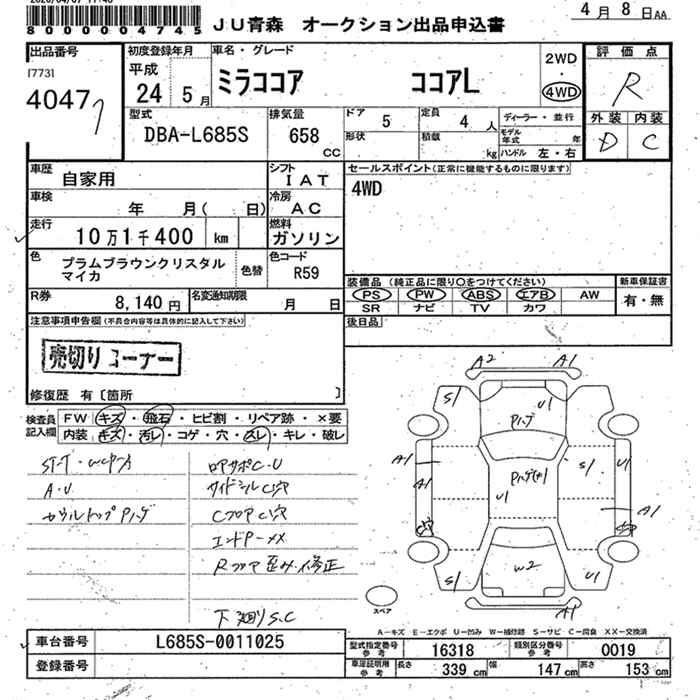 8 0 0 0 0 0 4 7 4 5
JU青森 オークション出品申込書
4月 8日AA
出品番号
17731
4047
初度登録年月
平成
24 5月
車名・グレード
ミラココア ココアL
2WD
・
4WD
評価点
R
外装 内装
D C
型式
DBA-L685S
排気量
658
CC
ドア 5
定員 4 人
形状
積載 kg
ディーラー・並行
モデル年式 年
ハンドル 左・右
車歴
自家用
シフト
IAT
セールスポイント(正常に機能するものに限ります)
4WD
車検
年 月( 日)
冷房
AC
走行
10万1千400 km
燃料
ガソリン
色
プラムブラウンクリスタル
マイカ
色替
色コード
R59
装備品(純正品に限り○をつけてください)
PS PW ABS エアB AW
SR ナビ TV カワ
新車保証書
有・無
後日品
R券
8,140円
名変通知期限
月 日
注意事項申告欄(不具合内容等は具体的に記入して下さい)
売切りコーナー
修復歴 有〔箇所 〕
検査員
記入欄
FW キズ・飛石・ヒビ割・リペア跡・×要
内装 キズ・汚レ・コゲ・穴・スレ・キレ・破レ
A・U
ロアサポC・U
サイドシルC穴
CフロアC穴
エンドP-XX
Rフロア歪み・修正
下廻りS.C
A2
A1
S1
U1
A1
A1
S1
U1
U1
A1
W2
S1
U1
A1
スペア
A-キズ E-エクボ U-凹み W-補修跡 S-サビ C-腐食 XX-交換済
車台番号
L685S-0011025
登録番号
型式指定番号
参考
16318
類別区分番号
参考
0019
車庫証明用
参考
長さ 339 cm 幅 147 cm 高さ 153 cm